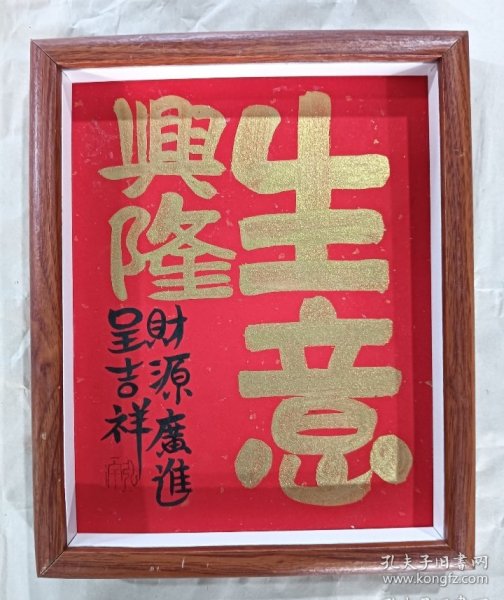 生意
興隆
財源廣進
呈吉祥
孔夫子旧书网
www.kongfz.com
孔夫子旧书网